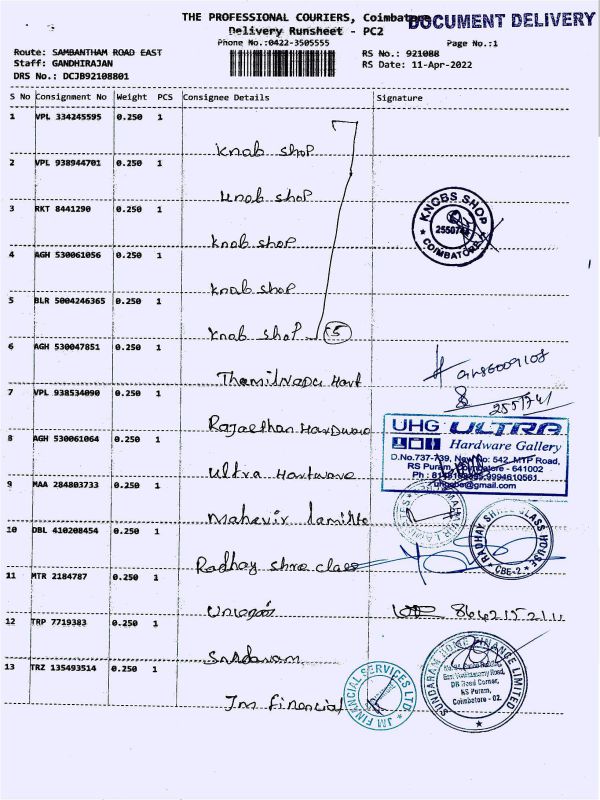 THE PROFESSIONAL COURIERS, Coimbatore
DOCUMENT DELIVERY
Delivery Runsheet - PC2
Phone No.:0422-3505555
Page No.:1
Route: SAMBANTHAM ROAD EAST
RS No.: 921088
Staff: GANDHIRAJAN
RS Date: 11-Apr-2022
DRS No.: DCJB92108801
S No Consignment No Weight PCS Consignee Details Signature
1 VPL 334245595 0.250 1
Knob shop
2 VPL 938944701 0.250 1
Knob shop
3 RKT 8441290 0.250 1
Knob shop
KNOBS SHOP
COIMBATORE
4 AGH 530061056 0.250 1
Knob shop
5 BLR 5004246365 0.250 1
Knob shop 5
6 AGH 530047851 0.250 1
Thamilnadu Hart
7 VPL 938534090 0.250 1
Rajasthan Hardware
UHG ULTRA
Hardware Gallery
D.No.737-739, New No: 542, MTP Road,
RS Puram, Coimbatore - 641002
8 AGH 530061064 0.250 1
Ultra Hartware
9 MAA 284803733 0.250 1
Mahavir lamitte
10 DBL 410208454 0.250 1
Radhay shree class
RADHAY SHREE GLASS HOUSE
CBE-2
11 MTR 2184787 0.250 1
12 TRP 7719383 0.250 1
SUNDARAM HOME FINANCE LIMITED
DB Road Corner,
RS Puram,
Coimbatore - 02.
13 TRZ 135493514 0.250 1
Jm financial
JM FINANCIAL SERVICES LTD.